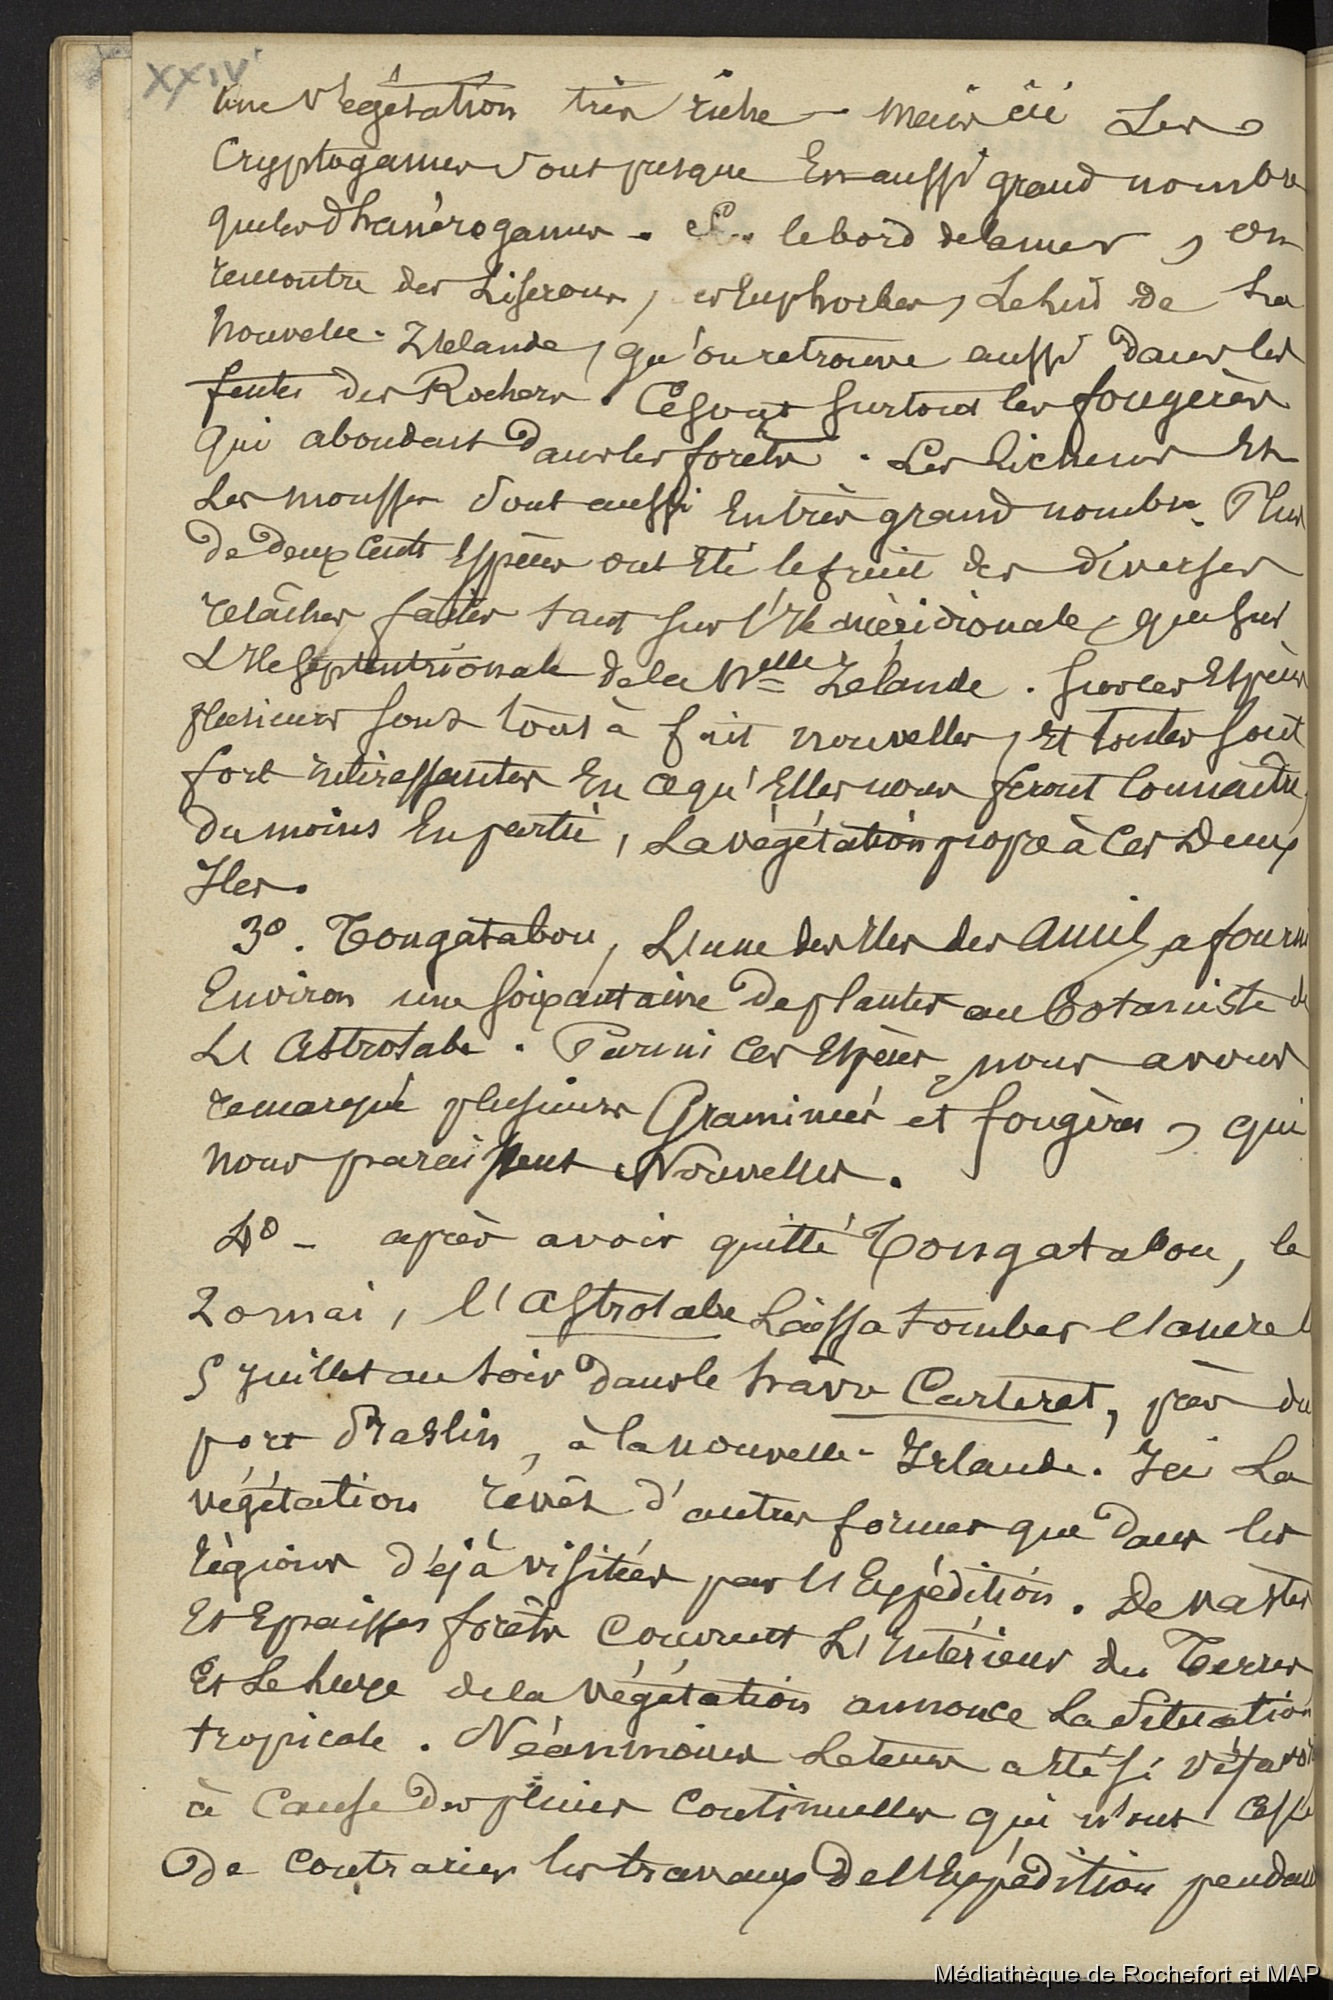 XXIV
une végétation très riche – mais ici Les
Cryptogames sont presque En aussi grand nombre
que les Phanérogames. le bord de la mer, on
rencontre des Liserons, Euphorbes, Le Lin de La
Nouvelle-Zélande, qu'on retrouve aussi dans les
fentes des Rochers. Ce sont surtout les fougères
qui abondent dans les forêts. Les lichens Et
Les mousses sont aussi En très grand nombre. Plus
de deux Cents Espèces ont Eté le fruit des diverses
relâches faites tant sur l'Ile méridionale, que sur
L'Ile Septentrionale de la Nelle Zélande. Sur ces Espèces
plusieurs sont tout à fait nouvelles, Et toutes sont
fort intéressantes En ce qu'Elles nous feront Connaître,
du moins En partie, La végétation propre à Ces Deux
Iles.
3°. Tongatabou, L'une des Iles des Amis, a fourni
Environ une soixantaine de plantes au Botaniste de
L'Astrolabe. Parmi Ces Espèces, nous avons
remarqué plusieurs Graminées et fougères, qui
nous paraissent Nouvelles.
4° – après avoir quitté Tongatabou, le
20 mai, l'Astrolabe Laissa tomber l'ancre l
5 Juillet au soir dans le havre Carteret, près du
port Praslin, à la nouvelle-Irlande. Ici La
végétation revêt d'autres formes que dans les
régions déjà visitées par l'Expédition. De vastes
Et Epaisses forêts Couvrent L'Intérieur des Terres
Et Le luxe de la végétation annonce La Situation
tropicale. Néanmoins Le tems a Eté si
à Cause des pluies Continuelles qui n'ont Cessé
De Contrarier les travaux De l'Expédition pendant
Médiathèque de Rochefort et MAP